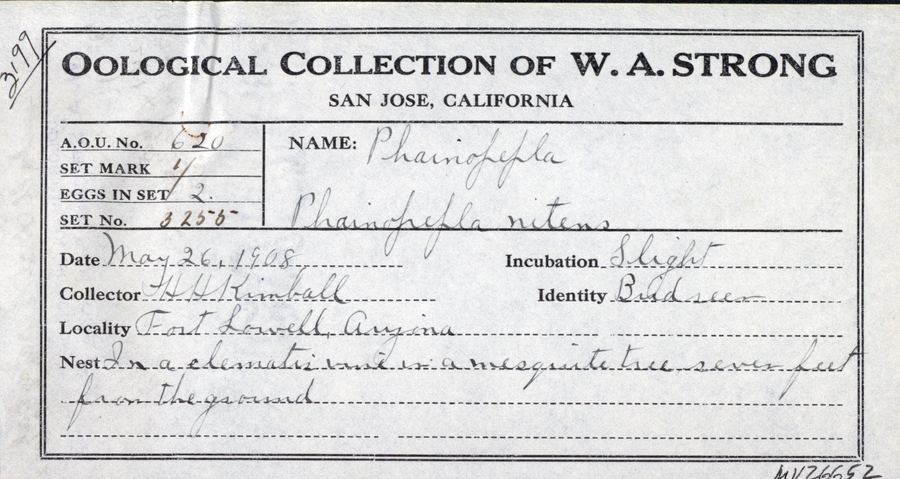 3199
OOLOGICAL COLLECTION OF W. A. STRONG
SAN JOSE, CALIFORNIA
A.O.U. No. 620
SET MARK 1/
EGGS IN SET 2.
SET No. 3255
NAME: Phainopepla
Phainopepla nitens
Date May 26, 1908 Incubation Slight
Collector H H Kimball Identity Bird seen
Locality Fort Lowell, Arizona
Nest In a clematis vine in a mesquite tree seven feet
from the ground